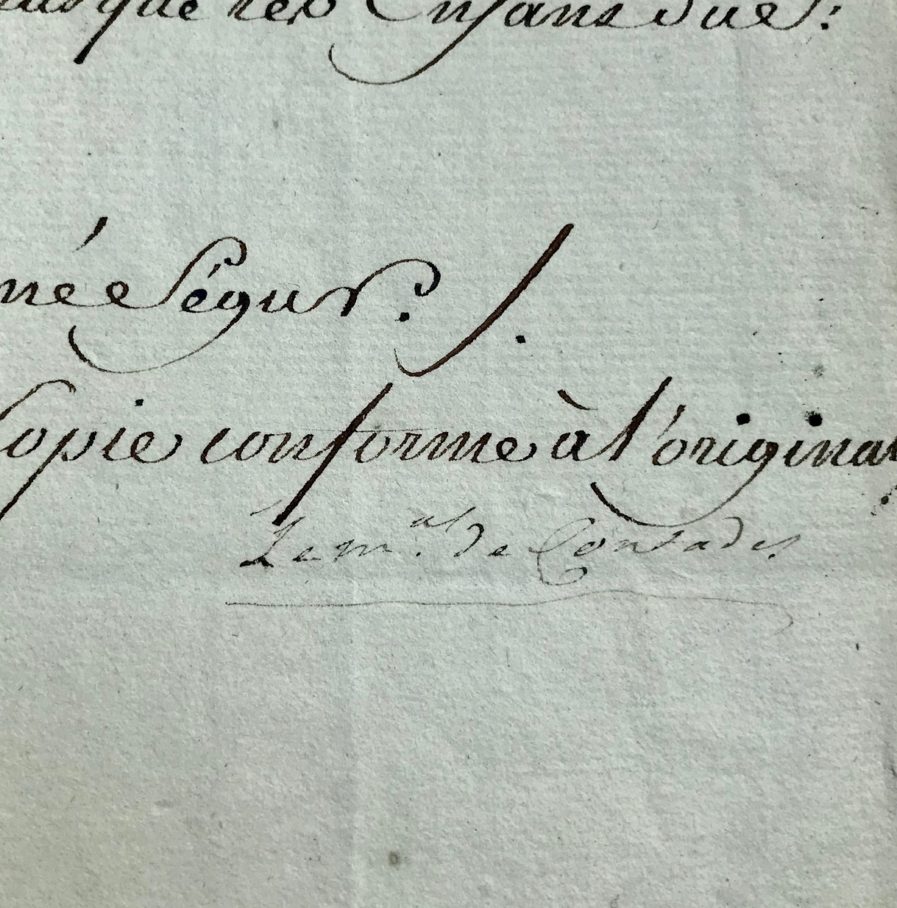 que les Enfans du S.r
née Ségur ./.
Copie conforme à l'original
Le m.al de Contades